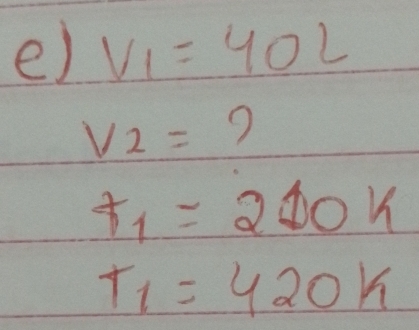 e) V1 = 40L
V2 = ?
t1 = 210K
T1 = 420K